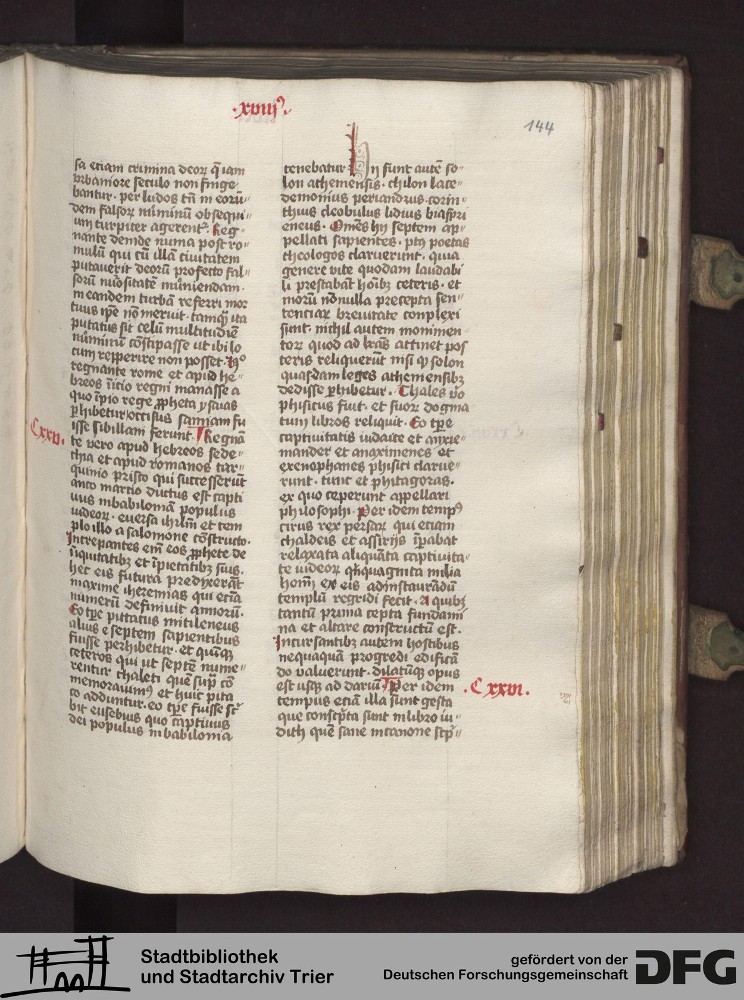 .xviijꝰ.
144
sa etiam crimina deoꝝ q̄ iam
vrbaniore seculo non finge
bantur. per ludos tn̄ in eorū
dem falsoꝝ nūminū obsequi
um turpiter agerentᷣ. Reg
nante deinde numa post ro
mulū qui cū illā ciuitatem
putauerit deorū profecto fal
sorū nūositate mūniendam.
in eandem turbā referri mor
tuus ip̄e non meruit. tamqᷓ ita
putatus sit celū multitudīe
nūminū cōstipasse ut ibi lo
cum repperire non posset. Hᵒ
regnante rome et apud he
breos īicio regni manasse a
quo īpio rege ꝓpheta ysaias
ꝑhibetur occisus samiam fu
isse sibillam ferunt. Regnā
Cxxv.
te vero apud hebreos sede
chia et apud romanos tar
quinio prisco qui successerūt
anco martio ductus est capti
uus in babiloniā populus
iudeoꝝ. euersa ihrl̄m et tem
plo illo a salomone cōstructo.
Intrepantes em̄ eos ꝓphete de
iniquitatibꝫ et īpietatibꝫ suis
hec eis futura predixerāt
maxime iheremias qui etiā
numerū definiuit annorū.
Eo tp̄e pittatus mitileneus
alius e septem sapientibus
fuisse perhibetur. et quīqꝫ
ceteros qui ut septē nume
rentur thaleti quē sup̄ cō
memorauimꝰ et huic pita
co adduntur. eo tp̄e fuisse sc̄
bit eusebius quo captiuus
dei populus in babilonia
tenebatur. Hii sunt autē so
lon atheniensis. chilon lace
demonius periandrus. corin
thius cleobulus lidius bias pri
eneus. Om̄es hij septem ap
pellati sapientes. ptꝫ poetas
theologos claruerunt. quia
genere vite quodam laudabi
li prestabāt hoībꝫ ceteris. et
morū nōnulla precepta sen
tenciaꝝ breuitate complexi
sunt. nichil autem monimen
toꝝ quod ad lr̄as attinet pos
teris reliquerūt nisi qꝫ solon
quasdam leges atheniensibꝫ
dedisse ꝑhibetur. Thales vo
phisicus fuit. et suoꝝ dogma
tum libros reliquit. Eo tp̄e
captiuitatis iudaice et anaxi
mander et anaximenes et
xenophanes phisici clarue
runt. tunc et phitagoras.
ex quo ceperunt appellari
philosophi. Per idem tempꝰ
cirus rex persaꝝ qui etiam
chaldeis et assirijs īpabat
relaxata aliquāta captiuita
te iudeoꝝ qn̄quaginta milia
hoīm̄ ex eis ad instaurādū
templū regredi fecit. A quibꝫ
tantū prima cepta fundami
na et altare constructū est.
Incursantibꝫ autem hostibus
nequaquā progredi edificā
do valuerunt. dilatūqꝫ opus
est usqꝫ ad dariū. Per idem
Cxxvi.
tempus etiā illa sunt gesta
que conscp̄ta sunt in libro iu
dith quē sane in canone scp̄
Stadtbibliothek
und Stadtarchiv Trier
gefördert von der
Deutschen Forschungsgemeinschaft
DFG